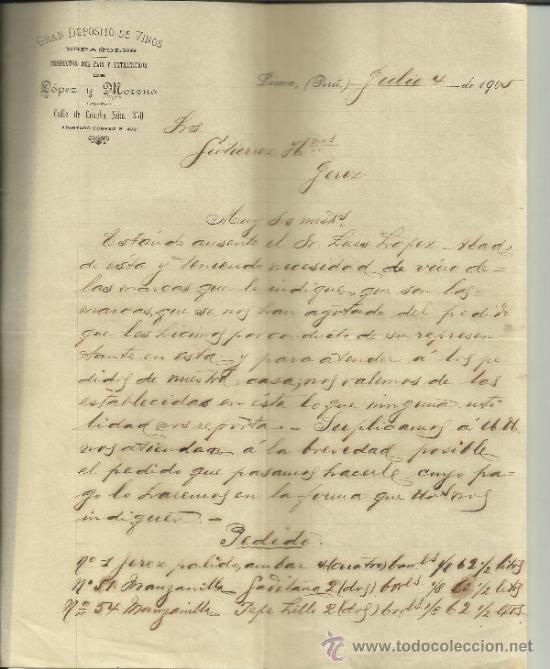 GRAN DEPOSITO DE VINOS
ESPAÑOLES
PRODUCTOS DEL PAIS Y EXTRANJEROS
DE
López y Moreno
Calle de Concha Núm. 350
APARTADO CORREO N. 422
Lima, (Perú.) Julio 4 de 1905
Srs
Gutierrez Hnos
Jerez
Muy Srs nuestrs.
Estando ausente el Sr Luis Lopez Abad
de esta y teniendo necesidad de vino de
las marcas que le indique, que son las
marcas, que se nos han agotado del pedido
que les hicimos por conducto de su represen
tante en esta y para atender á los pe
didos de nuestra casa, nos valemos de las
establecidas en ésta lo que ninguna uti
lidad nos reporta. - Suplicamos á UU.
nos atiendan á la brevedad posible
el pedido que pasamos hacerle cuyo pa-
go lo haremos en la forma que Uds nos
indiquen. -
Pedido.
Nº 1 Jerez palido, ambar 4 (cuatro) barls 1/8 62 1/2 lits
Nº 51 Manzanilla Gaditana 2 (dos) barls 1/8 62 1/2 lits
Nº 54 Manzanilla Pepe Lillo 2 (dos) barls 1/8 62 1/2 lits.
todocoleccion.net